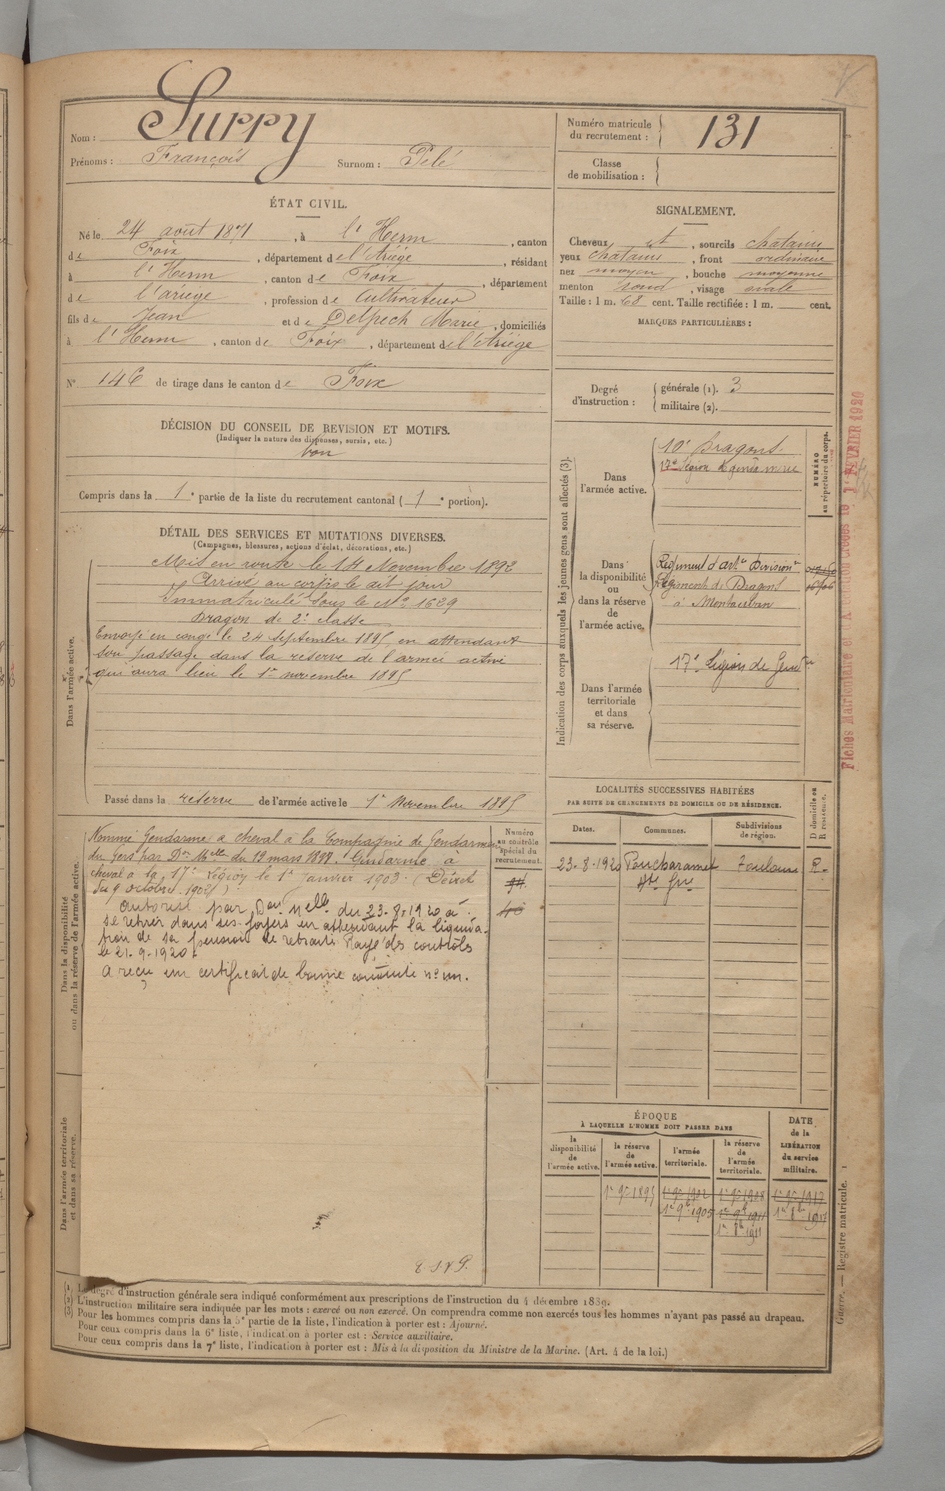 Nom : Surry
Prénoms : François Surnom : Pelé
Numéro matricule du recrutement : 131
Classe de mobilisation :
ÉTAT CIVIL.
Né le 24 août 1871, à l'Herm, canton
de Foix, département de l'Ariège, résidant
à l'Herm, canton de Foix, département
de l'ariège, profession de Cultivateur
fils de Jean et de Delpech Marie, domiciliés
à l'Herm, canton de Foix, département de l'Ariège
N° 146 de tirage dans le canton de Foix
SIGNALEMENT.
Cheveux et, sourcils chatains
yeux chatains, front ordinaire
nez moyen, bouche moyenne
menton rond, visage ovale
Taille : 1 m. 68 cent. Taille rectifiée : 1 m. cent.
MARQUES PARTICULIÈRES :
Degré d'instruction : générale (1). 3
militaire (2).
DÉCISION DU CONSEIL DE REVISION ET MOTIFS.
(Indiquer la nature des dispenses, sursis, etc.)
bon
Compris dans la 1e partie de la liste du recrutement cantonal (1e portion).
DÉTAIL DES SERVICES ET MUTATIONS DIVERSES.
(Campagnes, blessures, actions d'éclat, décorations, etc.)
Dans l'armée active.
Mis en route le 14 Novembre 1892
Arrivé au corps le dit jour
Immatriculé sous le N° 1629
Dragon de 2e classe
Envoyé en congé le 24 septembre 1895, en attendant
son passage dans la réserve de l'armée active
qui aura lieu le 1er novembre 1895
Passé dans la réserve de l'armée active le 1er Novembre 1895
Dans la disponibilité ou dans la réserve de l'armée active.
Nommé Gendarme à cheval à la Compagnie de Gendarmerie
du Gers par Don Melle du 12 mars 1898. Gendarme à
cheval à la 17e Légion le 1er janvier 1903. (Décret
du 9 octobre 1902)
autorisé par Don Melle du 23-8-1920 à
se retirer dans ses foyers en attendant la liquida-
tion de sa pension de retraite Rayé des contrôles
le 21-9-1920.
a reçu un certificat de bonne conduite n° un.
Dans l'armée territoriale et dans sa réserve.
Numéro au contrôle spécial du recrutement.
Indication des corps auxquels les jeunes gens sont affectés (3).
NUMÉRO au répertoire du corps.
Dans l'armée active.
10e Dragons
17e légion de gendarmerie
Dans la disponibilité ou dans la réserve de l'armée active.
Régiment d'artie Divisionre
Régiment de Dragons
à Montauban
Dans l'armée territoriale et dans sa réserve.
17e Légion de Gendrie
Fiches Matriculaire et
FÉVRIER 1920
LOCALITÉS SUCCESSIVES HABITÉES
PAR SUITE DE CHANGEMENTS DE DOMICILE OU DE RÉSIDENCE.
Dates. Communes. Subdivisions de région. D domicile ou R résidence.
23-8-1920 Poucharamet Toulouse R.
Hte Gne
ÉPOQUE
À LAQUELLE L'HOMME DOIT PASSER DANS
la disponibilité de l'armée active. la réserve de l'armée active. l'armée territoriale. la réserve de l'armée territoriale. DATE de la LIBÉRATION du service militaire.
1er 9bre 1895 1er 9bre 1902 1er 9bre 1908 1er 9bre 1917
1er 9bre 1905 1er 9bre 1911
(1) Le degré d'instruction générale sera indiqué conformément aux prescriptions de l'instruction du 4 décembre 1889.
(2) L'instruction militaire sera indiquée par les mots : exercé ou non exercé. On comprendra comme non exercés tous les hommes n'ayant pas passé au drapeau.
(3) Pour les hommes compris dans la 5e partie de la liste, l'indication à porter est : Ajourné.
Pour ceux compris dans la 6e liste, l'indication à porter est : Service auxiliaire.
Pour ceux compris dans la 7e liste, l'indication à porter est : Mis à la disposition du Ministre de la Marine. (Art. 4 de la loi.)
— Registre matricule.